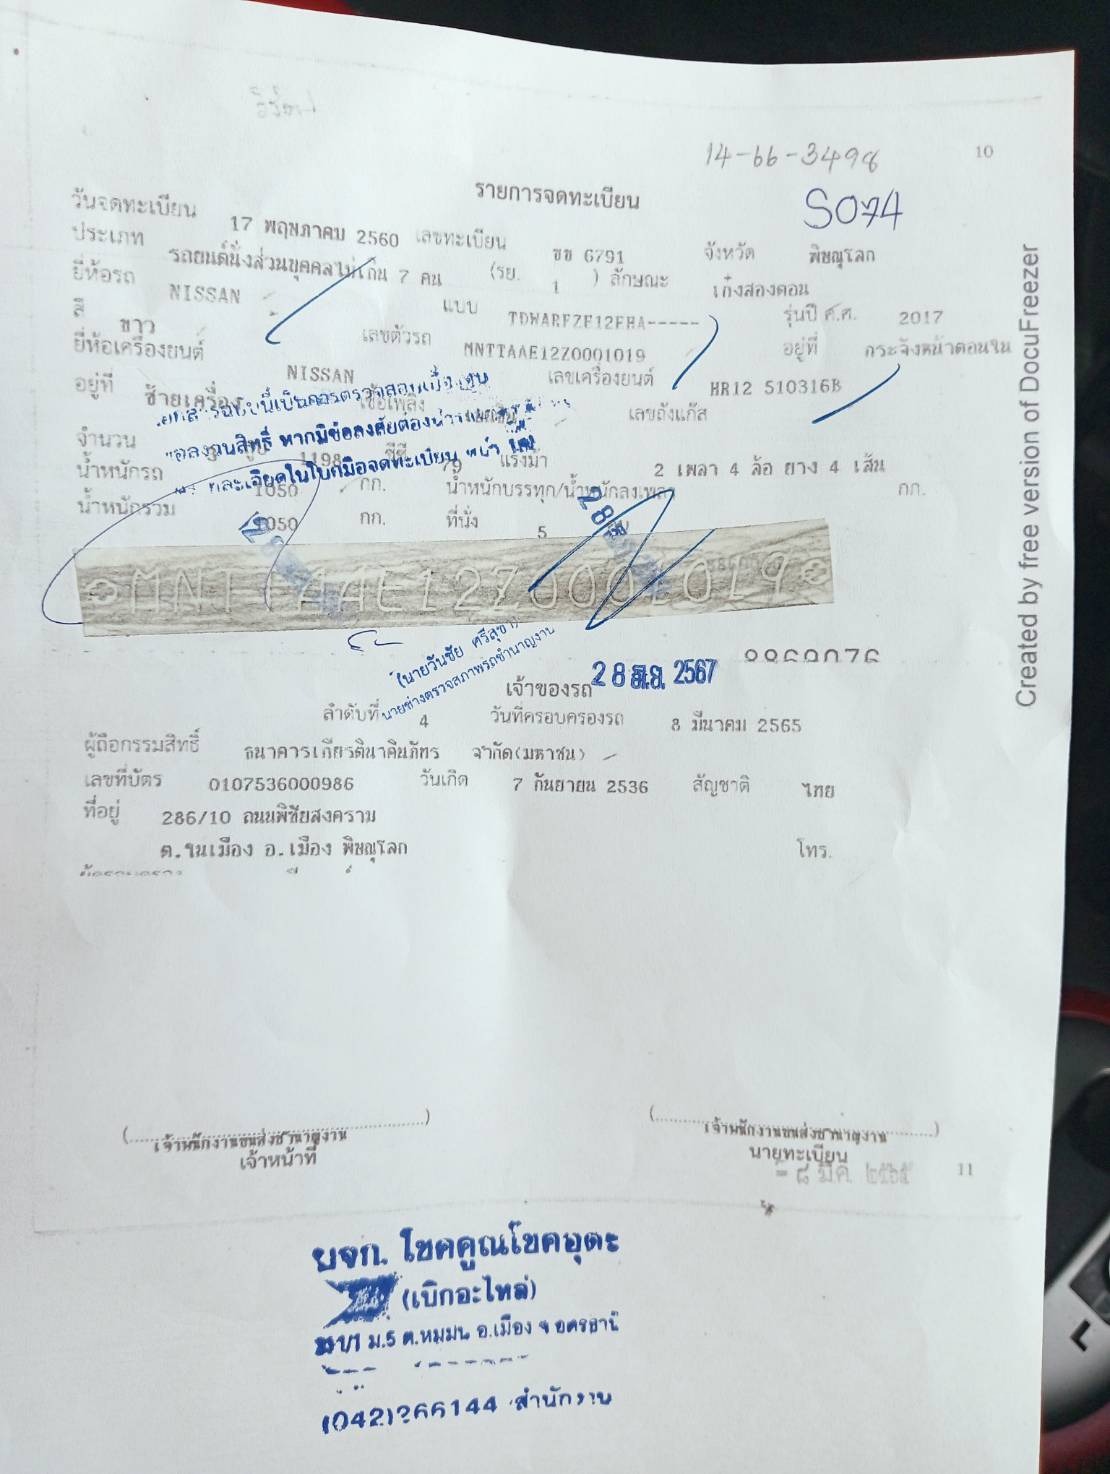 14-66-3498
10
รายการจดทะเบียน
S074
วันจดทะเบียน 17 พฤษภาคม 2560 เลขทะเบียน ขข 6791 จังหวัด พิษณุโลก
ประเภท รถยนต์นั่งส่วนบุคคลไม่เกิน 7 คน (รย. 1 ) ลักษณะ เก๋งสองตอน
ยี่ห้อรถ NISSAN แบบ TDWARFZE12EHA----- รุ่นปี ค.ศ. 2017
สี ขาว เลขตัวรถ MNTTAAE12Z0001019 อยู่ที่ กระจังหน้าตอนใน
ยี่ห้อเครื่องยนต์ NISSAN เลขเครื่องยนต์ HR12 510316B
อยู่ที่ ซ้ายเครื่อง เชื้อเพลิง เลขถังแก๊ส
จำนวน สูบ 1198 ซีซี 79 แรงม้า 2 เพลา 4 ล้อ ยาง 4 เส้น
น้ำหนักรถ 1050 กก. น้ำหนักบรรทุก/น้ำหนักลงเพลา กก.
น้ำหนักรวม 1050 กก. ที่นั่ง 5
MNTTAAE12Z0001019
(นายวันชัย ศรีสุขา)
นายช่างตรวจสภาพรถชำนาญงาน
28 มิ.ย. 2567
เจ้าของรถ
ลำดับที่ 4 วันที่ครอบครองรถ 8 มีนาคม 2565
ผู้ถือกรรมสิทธิ์ ธนาคารเกียรตินาคินภัทร จำกัด(มหาชน)
เลขที่บัตร 0107536000986 วันเกิด 7 กันยายน 2536 สัญชาติ ไทย
ที่อยู่ 286/10 ถนนพิชัยสงคราม
ต.ในเมือง อ.เมือง พิษณุโลก โทร.
(..........) (..........)
เจ้าพนักงานขนส่งชำนาญงาน เจ้าพนักงานขนส่งชำนาญงาน
เจ้าหน้าที่ นายทะเบียน
- ๘ มี.ค. ๒๕๖๕
11
ผจก. โชคคูณโชคอุดะ
(เบิกอะไหล่)
ม.5 ต.หมูม่น อ.เมือง จ อุดรธานี
(042)266144 สำนักงาน
Created by free version of DocuFreezer